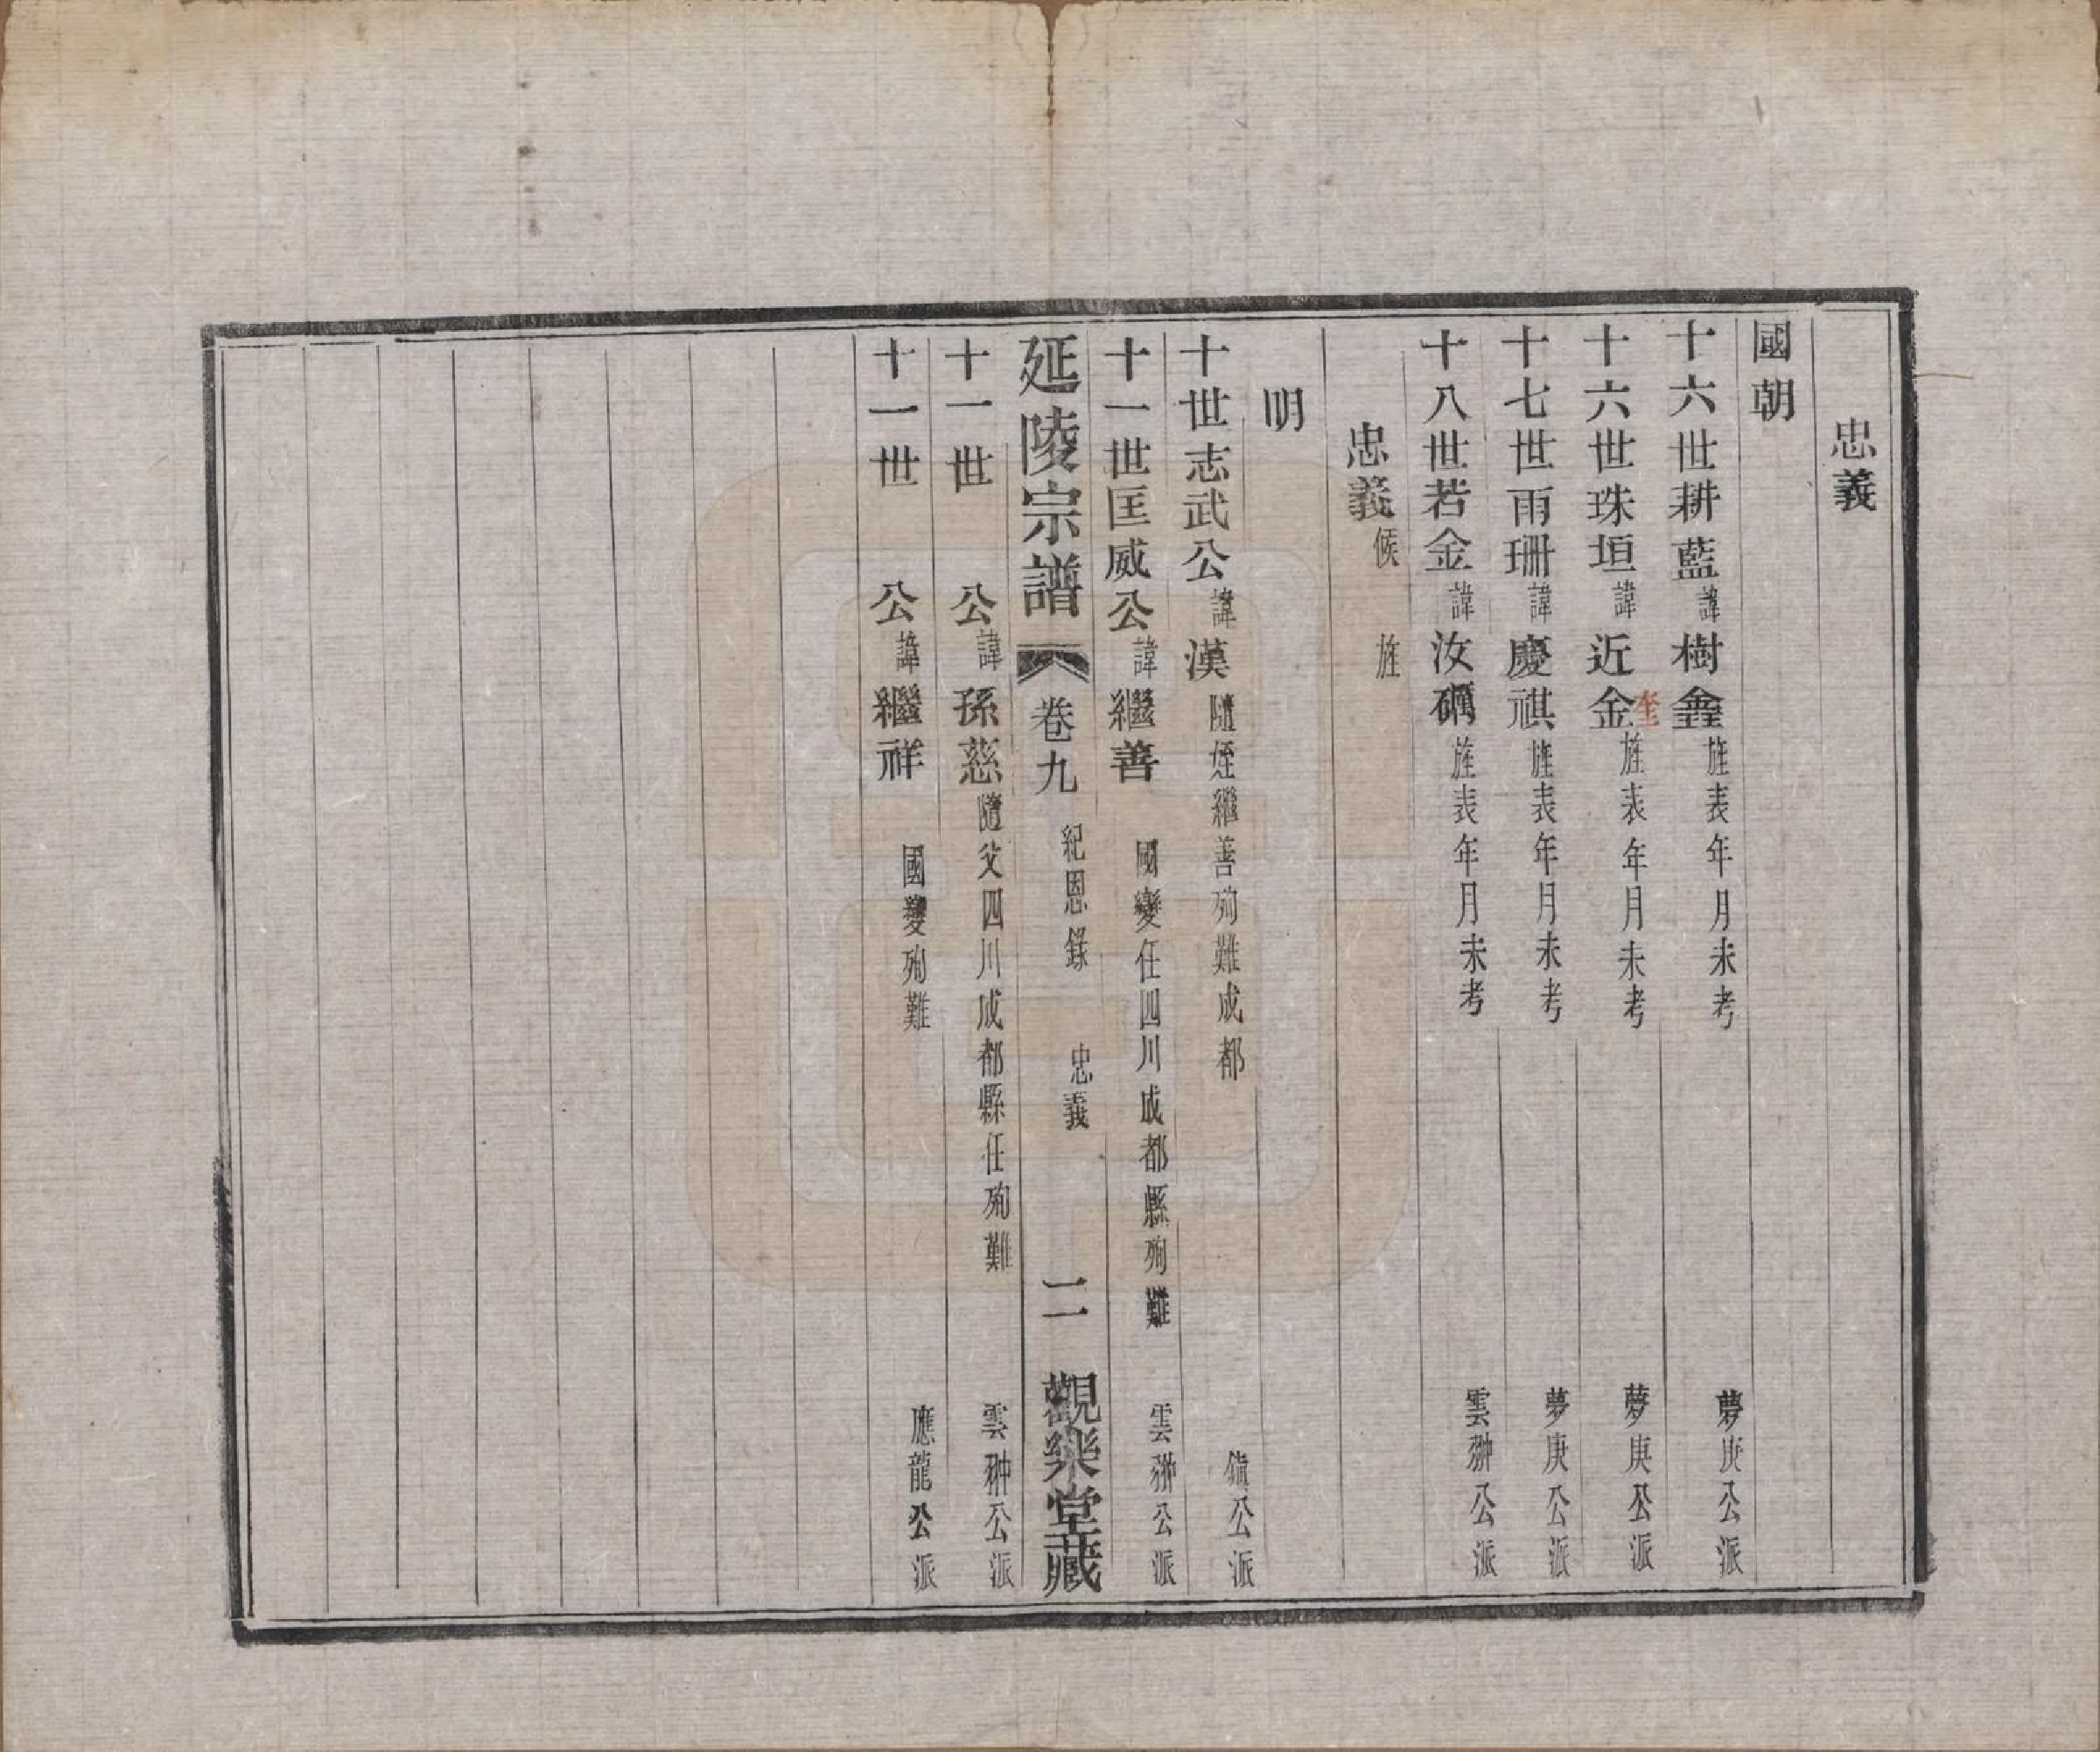 忠義
國朝
十六世耕藍諱樹鑫旌表年月未考 夢庚公派
十六世珠垣諱近金旌表年月未考 夢庚公派
十七世雨珊諱慶祺旌表年月未考 夢庚公派
十八世若金諱汝礪旌表年月未考 雲翀公派
忠義候 旌
明
十世志武公諱漢 隨姪繼善殉難成都 公派
十一世匡威公諱繼善 國變任四川成都縣殉難 雲翀公派
延陵宗譜 卷九 紀恩錄 忠義 二 觀樂堂藏
十一世 公諱孫慈隨父四川成都縣任殉難 雲翀公派
十一世 公諱繼祥 國變殉難 應龍公派